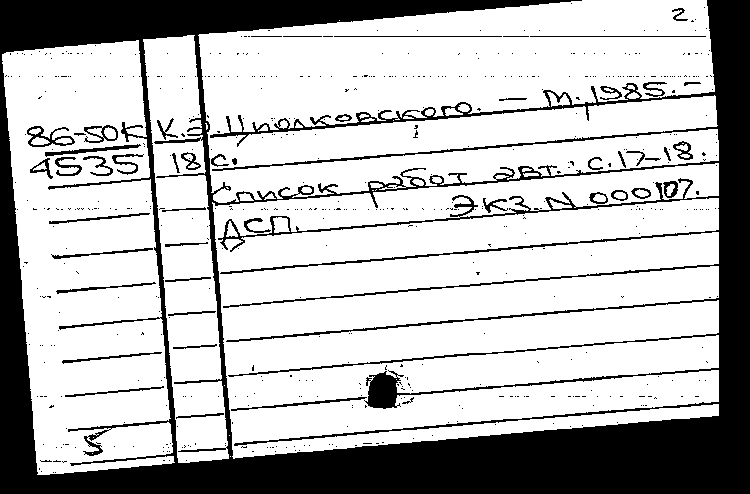 2.
86-50К К.Э.Циолковского. — М., 1985. –
4535 18 с.
Список работ авт.: с.17–18.
Экз. N 000107.
ДСП.
5